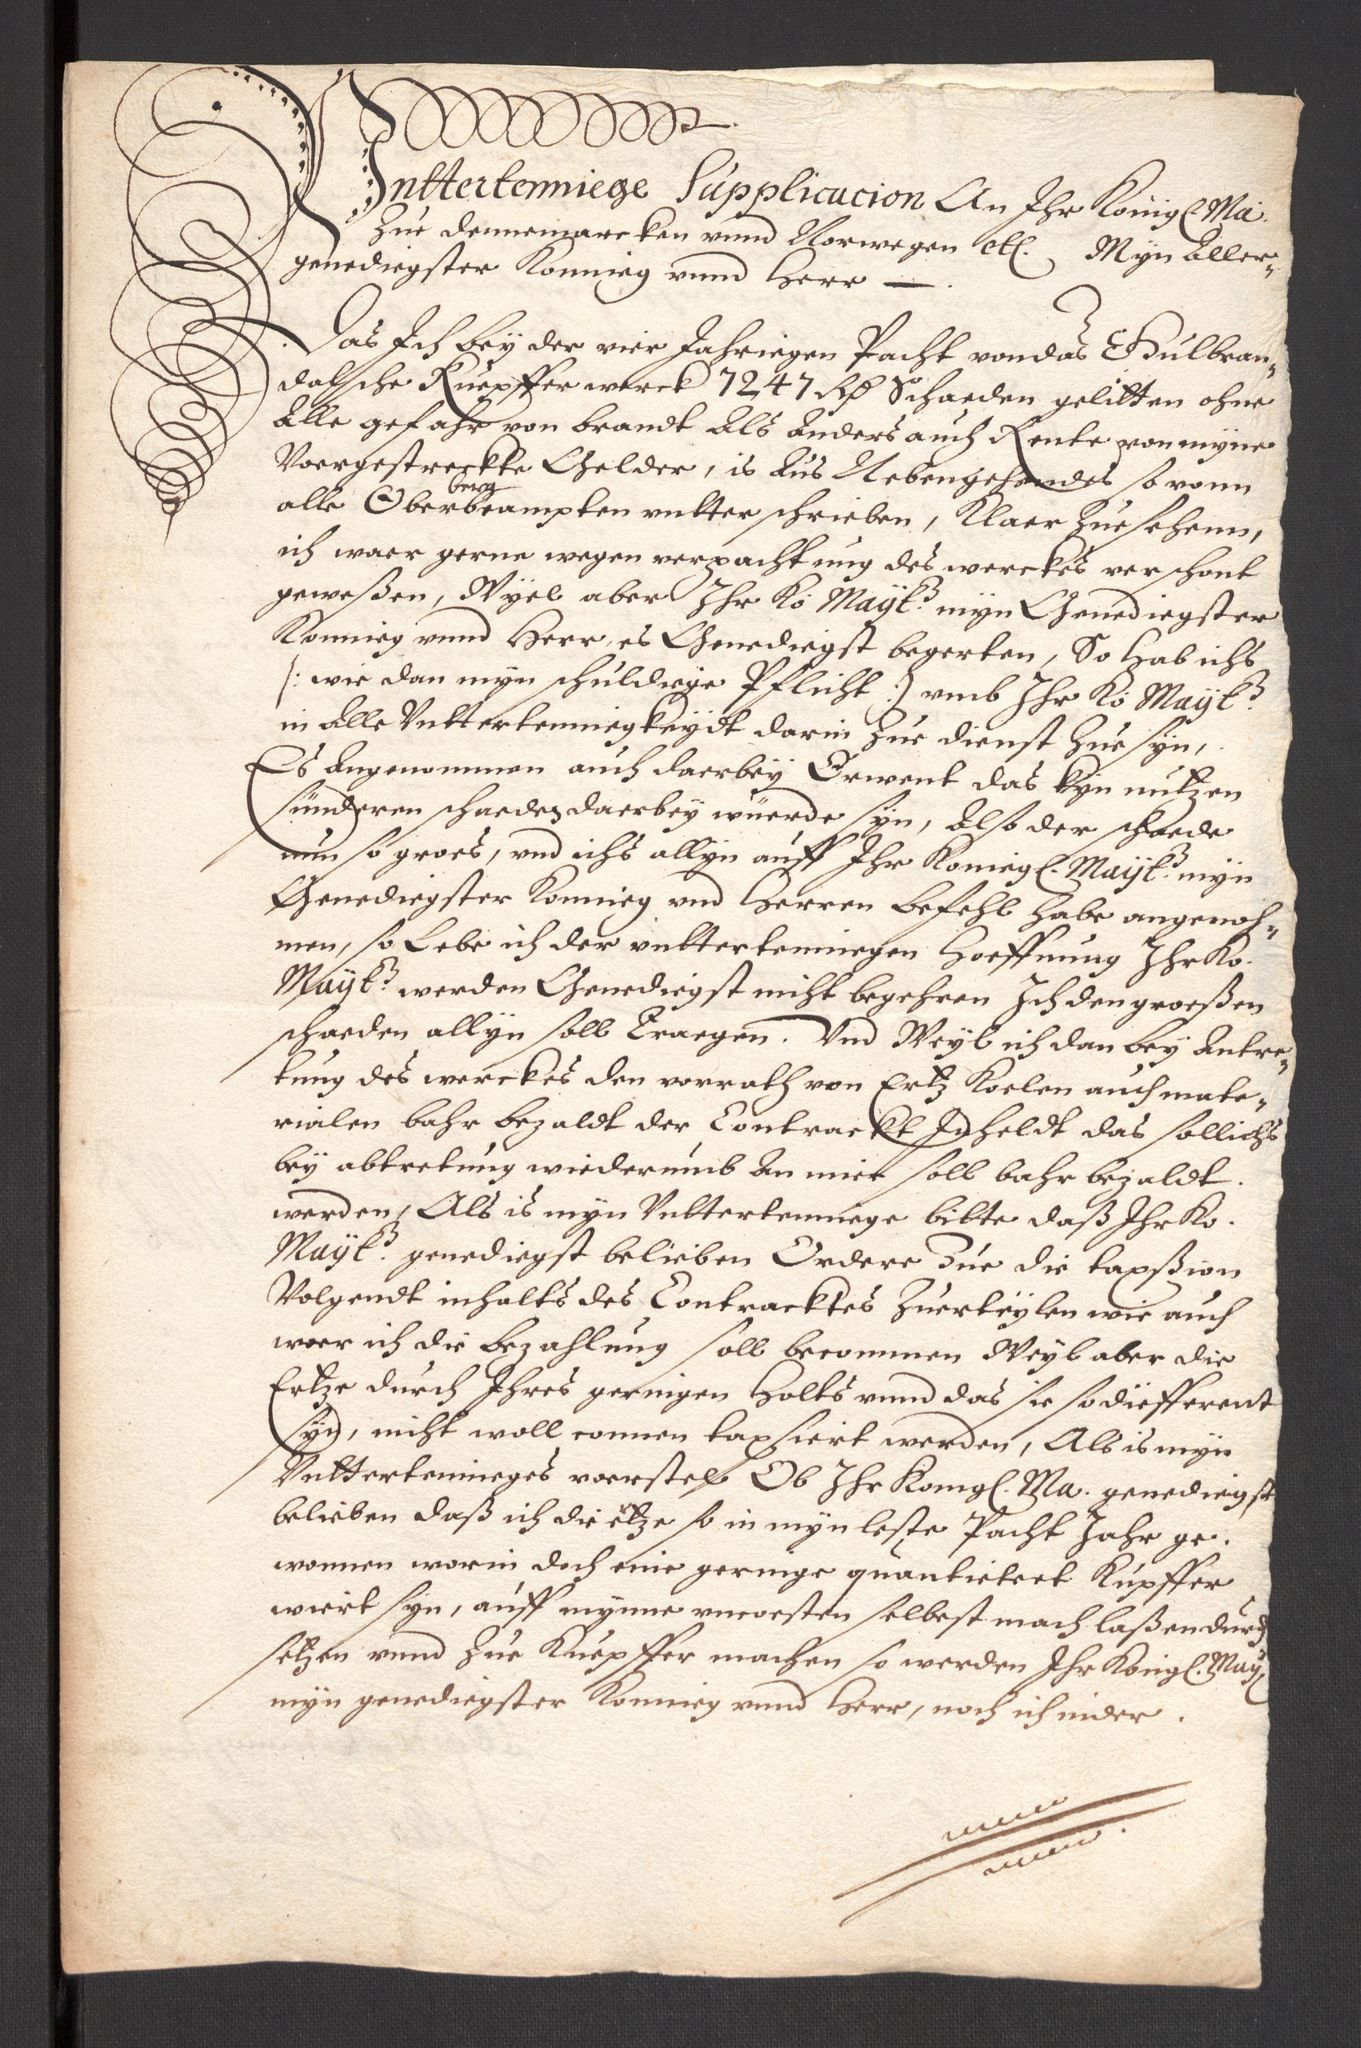 Untterteniege Supplicacion An Ihr Königl. Ma.
Zue dennemarcken vnnd Norwegen etc. Myn Aller-
genediegster Konnieg vnnd Herr —.
Das Ich bey der vier Jahriegen Pacht von das Gulbran-
dalsche Kuepffer werck 7247 Rd Schaeden gelitten ohne
Alle gefahr von brandt Als Anders auch Rente von myne
Voergestreckte Gelder, is Aus Nebengehendes so vonn
alle Oberbergbeampten vntter schrieben, Klaer Zue sehenn,
ich waer gerne wegen verpachtung des werckes verschont
geweßen, Wyel aber Ihr Kö Maytt. myn Genediegster
Konnieg vnnd Herr, es Genediegst begerten, So Hab ichs
/: wie dan myn schuldiege Pflicht :/ vmb Ihr Kö Maytt.
in Alle Vnttertenniegkeydt darin Zue dienst Zue syn,
Es Angenommen auch daerbey Erwent das kyn nutzen
sünderen schaeden daerbey wüerde syn, Also der schaede
nun so groes, vnd ichs allyn auff Ihr Koniegl. Maytt. myn
Genediegster Konnieg vnd Herren befehl habe angenoh-
men, so Lebe ich der vnttertenniegen Hoeffnung Ihr Ko.
Maytt. werden Genediegst nicht begehren Ich den groeßen
schaeden allyn soll Traegen. Vnd Weyl ich dan bey Antre-
tung des werckes den vorrath von Ertz Koelen auch mate-
rialen bahr bezaldt der Contrackt Inheldt das sollichs
bey abtretung wiederumb An mier soll bahr bezaldt.
werden, Als is myn Vnttertenniege bitte daß Ihr Ko.
Maytt. genediegst belieben Ordere Zue die taxßion
Volgendt inhalts des Contracktes Zuerteylen wie auch
woer ich die bezahlung soll becommen Weyl aber die
Ertze durch Ihres geringen Holts vnnd das sie so diefferent
syn, nicht woll connen taxsiert werden, Als is myn
Vnttertenieges voerstel Ob Ihr Konigl. Ma. genediegst
belieben daß ich die ertze so in myn leste Pacht Jahr ge.
wonnen worin doch eine geringe quantieteet Kupffer
wiert syn, auff mynne vncoesten selbest mach laßen durch
setzen vnnd Zue Kuepffer machen so werden Ihr Königl. May
myn genediegster Konnieg vnnd Herr, noch ich inder.